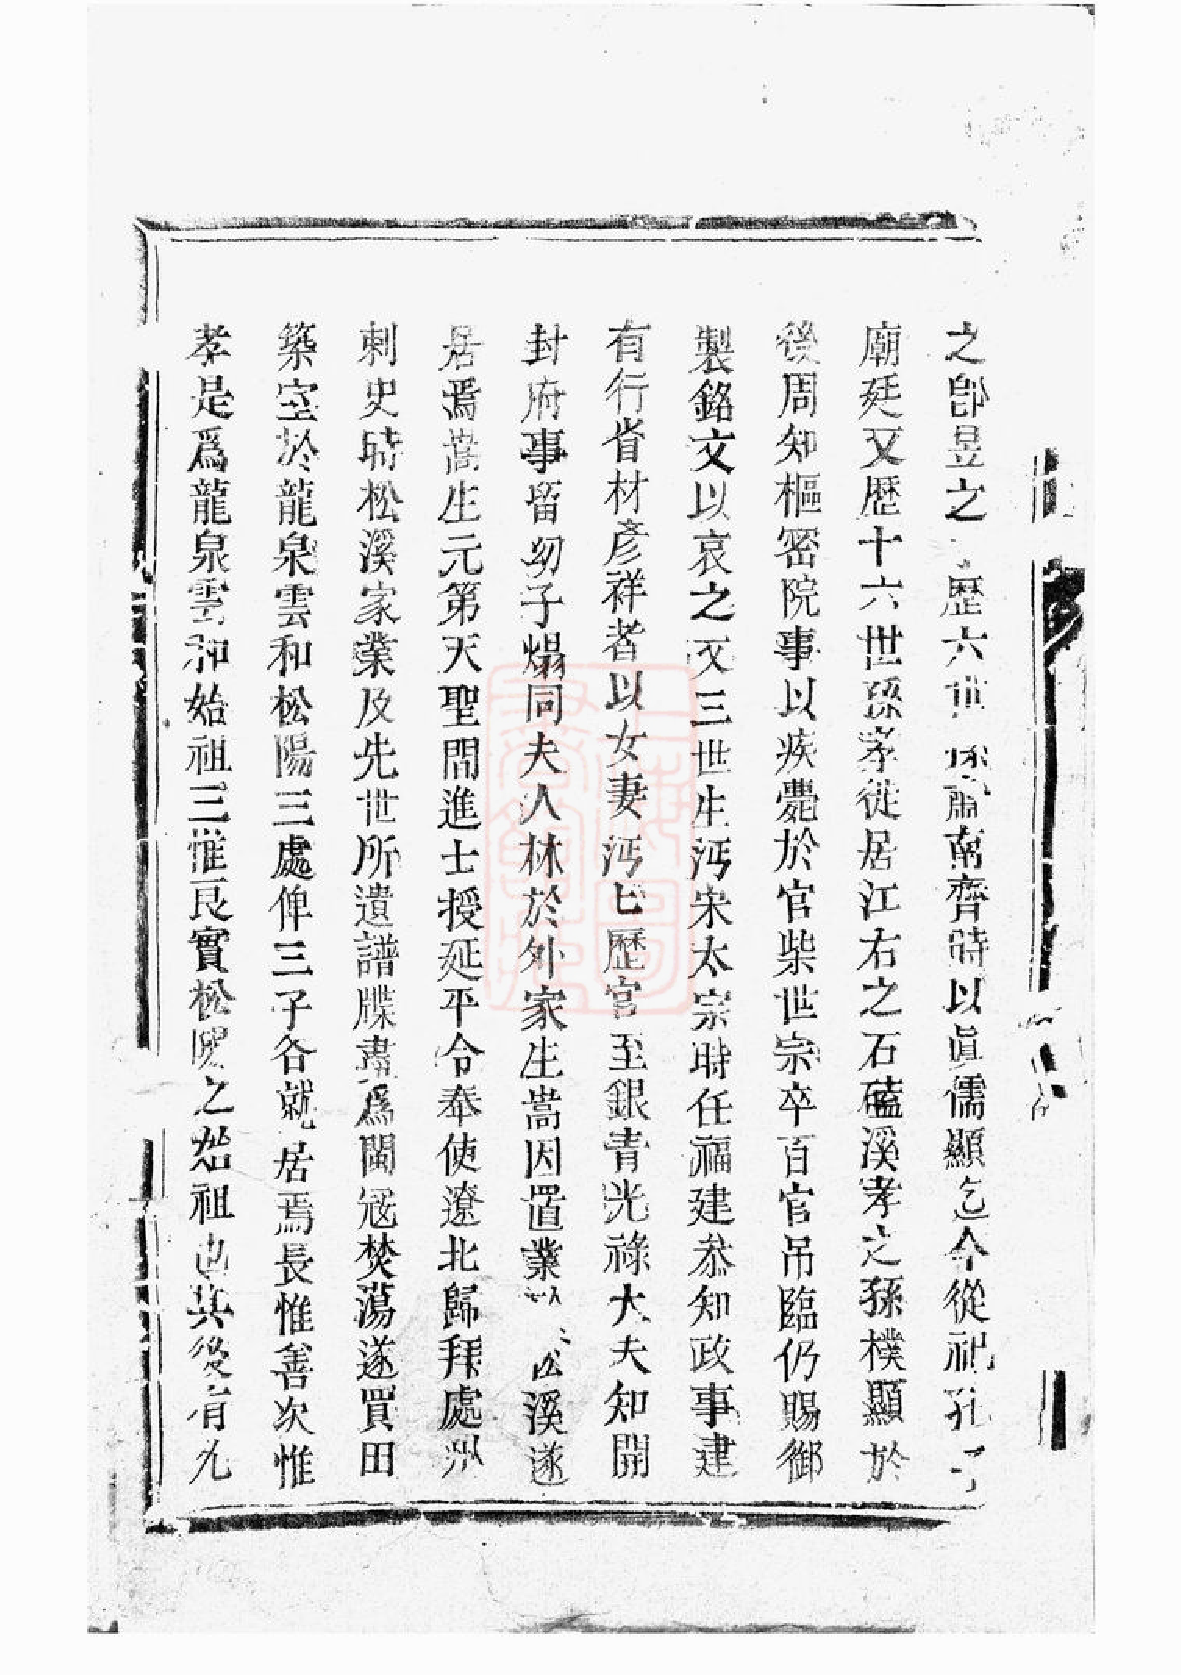 之郎昱之歷六世孫肅南齊時以眞儒顯迄今從祀孔
廟廷又歷十六世孫孝徙居江右之石磕溪孝之孫樸顯於
後周知樞密院事以疾薨於官柴世宗卒百官吊臨仍賜御
製銘文以哀之又三世生沔宋太宗時任福建叅知政事建
有行省材彥祥者以女妻沔七歷官至銀青光祿大夫知開
封府事留幼子煬同夫人林於外家生嵩因置業松溪遂
居焉嵩生元第天聖間進士授延平令奉使遼北歸拜處州
刺史時松溪家業及先世所遺譜牒盡爲閩冦焚蕩遂買田
築室於龍泉雲和松陽三處俾三子各就居焉長惟善次惟
孝是爲龍泉雲和始祖三惟良實松陽之始祖也其後有九
上海圖書館藏